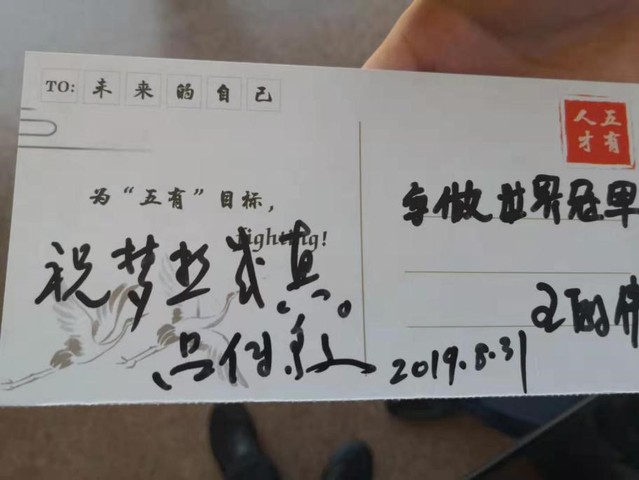 TO: 未来的自己
五有
人才
为“五有”目标，
fighting!
祝梦想成真。
争做世界冠军
2019.8.31